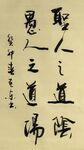 聖人之道陰
愚人之道陽
癸卯春